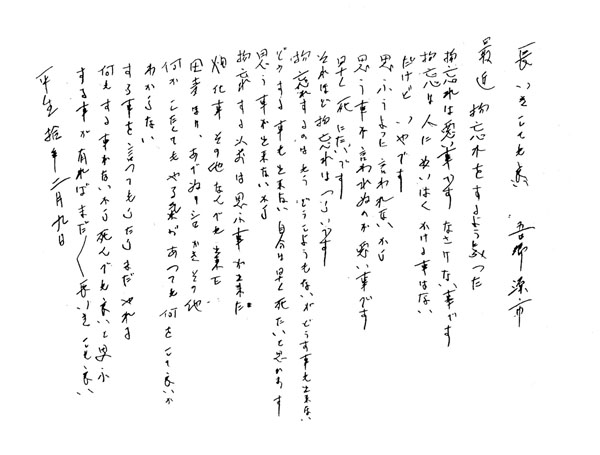 長いきしても良い 吾郷源市
最近 物忘れをするようになった
物忘れは悪い事です なさけない事です
物忘は人にめいはくかける事はない
だけど いやです
思ふように言われないから
思う事が言われぬのが悪い事です
早く死にたいです
それほど物忘れは つらいです
物忘れするのはもう どうしようもないが どうする事も出来ない
どうする事も出来ない自分は 早く死たいと思ひます
思う事が出来ないから
物忘れする以前は思ふ事が出来た
畑仕事 その他なんでも出来た
田仕事は あぜぬり シロかき その他
何か したくても やる気があっても 何をして良いか
わからない
する事を言ってもらったら まだ やれる
何もする事がないから死んでも良いと思ふ
する事が有れば まだ〱長いきしても良い
平成拾年 二月九日